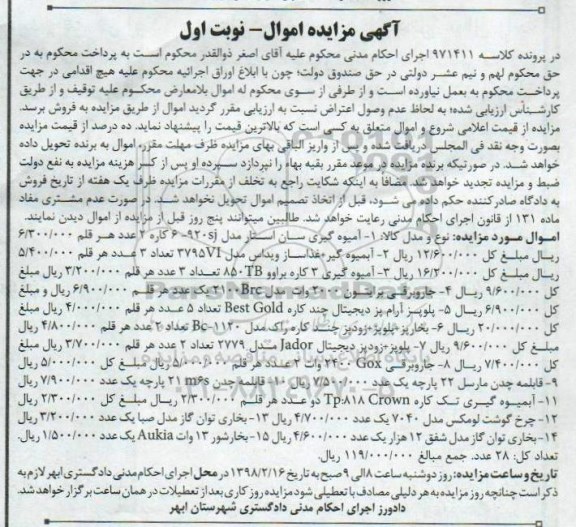 آگهی مزایده اموال – نوبت اول
در پرونده کلاسه ۹۷۱۴۱۱ اجرای احکام مدنی محکوم علیه آقای اصغر ذوالقدر محکوم است به پرداخت محکوم به در
حق محکوم لهم و نیم عشر دولتی در حق صندوق دولت؛ چون با ابلاغ اوراق اجرائیه محکوم علیه هیچ اقدامی در جهت
پرداخت محکوم به بعمل نیاورده است و از طرفی از سوی محکوم له اموال بلامعارض محکوم علیه توقیف و از طریق
کارشناس ارزیابی شده؛ به لحاظ عدم وصول اعتراض نسبت به ارزیابی مقرر گردید اموال از طریق مزایده به فروش برسد.
مزایده از قیمت اعلامی شروع و اموال متعلق به کسی است که بالاترین قیمت را پیشنهاد نماید. ده درصد از قیمت مزایده
بصورت وجه نقد فی المجلس دریافت شده و پس از واریز الباقی بهای مزایده ظرف مهلت مقرر اموال به برنده تحویل داده
خواهد شد. در صورتیکه برنده مزایده در موعد مقرر بقیه بهاء را نپردازد سپرده او پس از کسر هزینه مزایده به نفع دولت
ضبط و مزایده تجدید خواهد شد. مضافا به اینکه شکایت راجع به تخلف از مقررات مزایده ظرف یک هفته از تاریخ فروش
به دادگاه صادرکننده حکم داده می شود، قبل از اتخاذ تصمیم اموال تحویل نخواهد شد. در صورت عدم مشتری مفاد
ماده ۱۳۱ از قانون اجرای احکام مدنی رعایت خواهد شد. طالبین میتوانند پنج روز قبل از مزایده از اموال دیدن نمایند.
اموال مورد مزایده: نوع و مدل کالا: ۱- آبمیوه گیری سان استار مدل 920sj-۶ کاره ۲ عدد هر قلم ۶/۳۰۰/۰۰۰
ریال مبلغ کل ۱۲/۶۰۰/۰۰۰ ریال ۲- آبمیوه گیر مغذاساز ویداس مدل 3795VI تعداد ۳ عدد هر قلم ۵/۴۰۰/۰۰۰
ریال مبلغ کل ۱۶/۲۰۰/۰۰۰ ریال ۳- آبمیوه گیری ۳ کاره براوو 850TB تعداد ۳ عدد هر قلم ۳/۲۰۰/۰۰۰ ریال مبلغ
کل ۹/۶۰۰/۰۰۰ ریال ۴- جاروبرقی برنتون ۲۰۰۰ وات مدل Brc-۲۱۹۰ یک عدد هر قلم ۶/۹۰۰/۰۰۰ ریال و مبلغ
کل ۶/۹۰۰/۰۰۰ ریال ۵- پلوپز آرام پز دیجیتال چند کاره Best Gold تعداد ۵ عدد هر قلم ۴/۰۰۰/۰۰۰ ریال مبلغ
کل ۲۰/۰۰۰/۰۰۰ ریال ۶- بخارپز پلوپز زودپز چند کاره راک مدل Bc-۱۱۲۰ تعداد ۲ عدد هر قلم ۴/۸۰۰/۰۰۰ ریال
مبلغ کل ۹/۶۰۰/۰۰۰ ریال ۷- پلوپز زودپز دیجیتال Jador مدل ۲۷۷۹ تعداد ۲ عدد هر قلم ۳/۷۰۰/۰۰۰ ریال مبلغ
کل ۷/۴۰۰/۰۰۰ ریال ۸- جاروبرقی Gox ۲۴۰۰ وات ۲ عدد هر قلم ۵/۰۰۰/۰۰۰ ریال مبلغ کل ۵/۰۰۰/۰۰۰ ریال
۹- قابلمه چدن مارسل ۲۲ پارچه یک عدد ۷/۵۰۰/۰۰۰ ریال ۱۰- قابلمه چدن m²s ۲۱ پارچه یک عدد ۷/۹۰۰/۰۰۰ ریال
۱۱- آبمیوه گیری تک کاره Tp:818 Crown دو عدد هر قلم ۲/۳۰۰/۰۰۰ ریال مبلغ کل ۲/۳۰۰/۰۰۰ ریال
۱۲- چرخ گوشت لومکس مدل ۷۰۴۰ یک عدد ۴/۷۰۰/۰۰۰ ریال ۱۳- بخاری توان گاز مدل صبا یک عدد ۳/۲۰۰/۰۰۰ ریال
۱۴- بخاری توان گاز مدل شفق ۱۲ هزار یک عدد ۴/۶۰۰/۰۰۰ ریال ۱۵- بخارشور ۱۳ وات Aukia یک عدد ۱/۵۰۰/۰۰۰ ریال.
تعداد کل: ۲۸ عدد. جمع مبالغ ۱۱۹/۰۰۰/۰۰۰ ریال.
تاریخ و ساعت مزایده: روز دوشنبه ساعت ۸ الی ۹ صبح به تاریخ ۱۳۹۸/۲/۱۶ در محل اجرای احکام مدنی دادگستری ابهر لازم به
ذکر است چنانچه روز مزایده به هر دلیلی مصادف با تعطیلی شود مزایده روز کاری بعد از تعطیلات در همان ساعت برگزار خواهد شد.
دادورز اجرای احکام مدنی دادگستری شهرستان ابهر